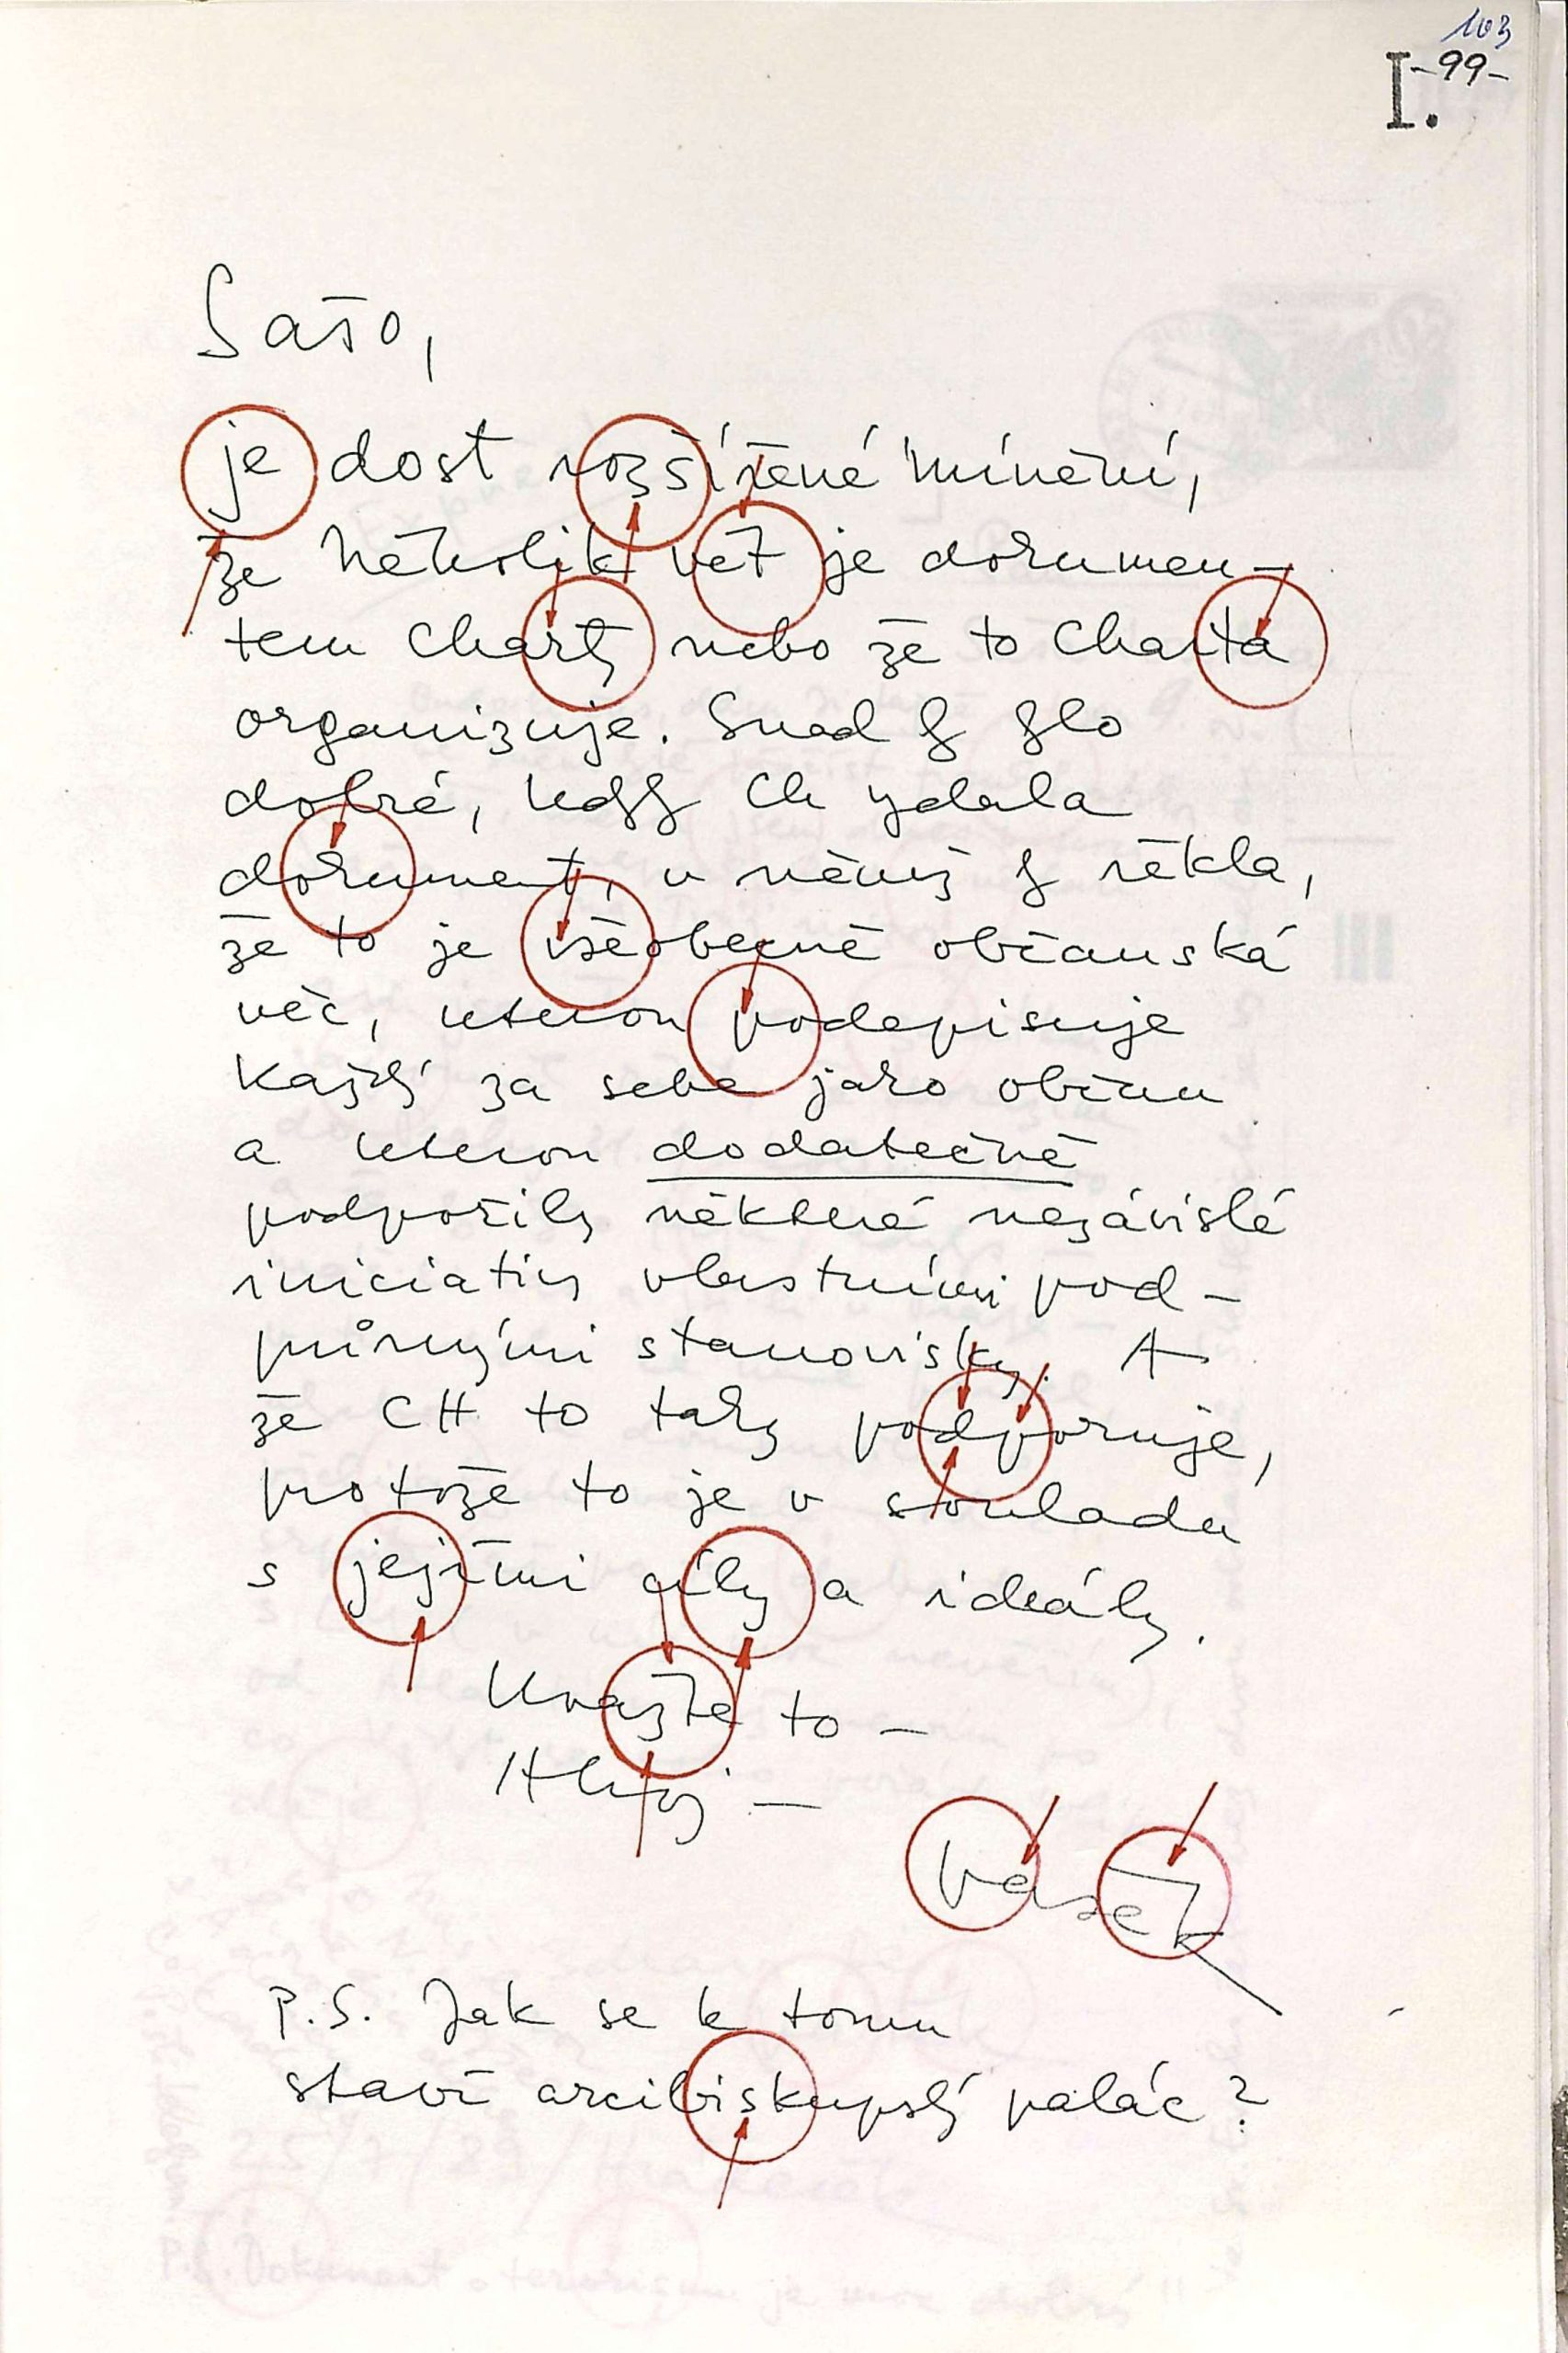 103
I. -99-
Sašo,
je dost rozšířené mínění,
že několik vět je dokumen-
tem Charty nebo že to Charta
organizuje. Snad by bylo
dobré, kdyby Ch vydala
dokument, v němž by řekla,
že to je všeobecně občanská
věc, kterou podepisuje
každý za sebe jako občan
a kterou dodatečně
podpořily některé nezávislé
iniciativy vlastními pod-
půrnými stanovisky. A
že CH to taky podporuje,
protože to je v souladu
s jejími cíly a ideály.
Uvažte to -
Ahoj -
Vašek
P.S. Jak se k tomu
staví arcibiskupský palác?